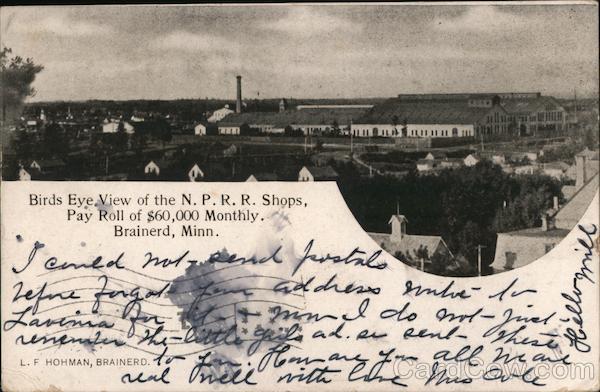 Birds Eye View of the N. P. R. R. Shops,
Pay Roll of $60,000 Monthly.
Brainerd, Minn.
I could not send postals
before forgot your address wrote to
Lavinia for it & now I do not just
remember the little girls ad. so sent these
to you How are you all we are
real well with love Mrs
L. F. HOHMAN, BRAINERD.
CardCow.com